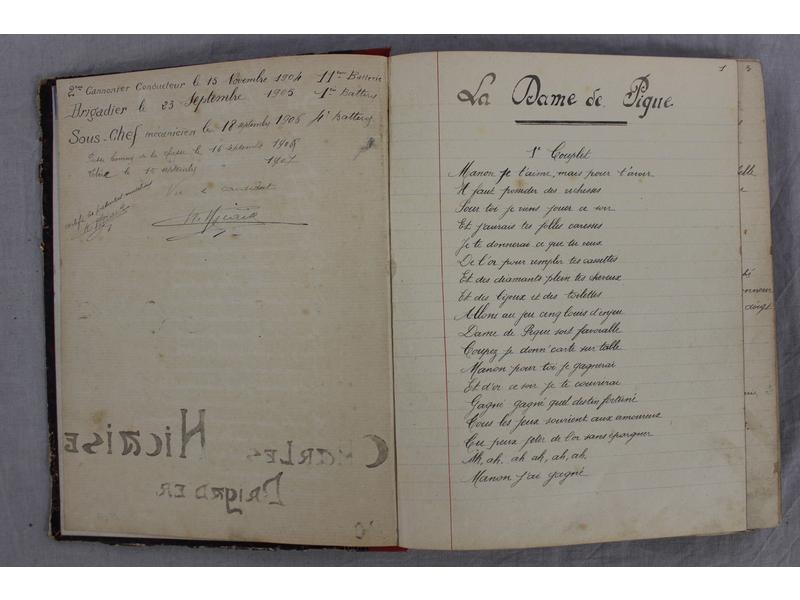 2me Cannonier Conducteur le 15 Novembre 1904 11me Batterie
Brigadier le 23 Septembre 1905 1re Battery
Sous-Chef mécanicien le 18 septembre 1906 4e Battery
de la classe le 16 septembre 1906
Libéré le 15 septembre 1907
Vu le commandant
NICAISE
CHARLES
BRIGADER
1
La Dame de Pique
1r Couplet
Manon je t'aime, mais pour t'avoir
Il faut posséder des richesses
Pour toi je viens jouer ce soir
Et j'aurais tes folles caresses
Je te donnerai ce que tu veux
De l'or pour remplir tes cassettes
Et des diamants plein tes cheveux
Et des bijoux et des toilettes
Allons au jeu cinq louis d'enjeu
Dame de Pique sois favorable
Coupez je donn' carte sur table
Manon pour toi je gagnerai
Et d'or ce soir je te couvrirai
Gagné gagné quel destin fortuné
Tous les jeux sourient aux amoureux
Tu peux jeter de l'or sans épargner
Ah, ah, ah ah, ah, ah,
Manon j'ai gagné
3